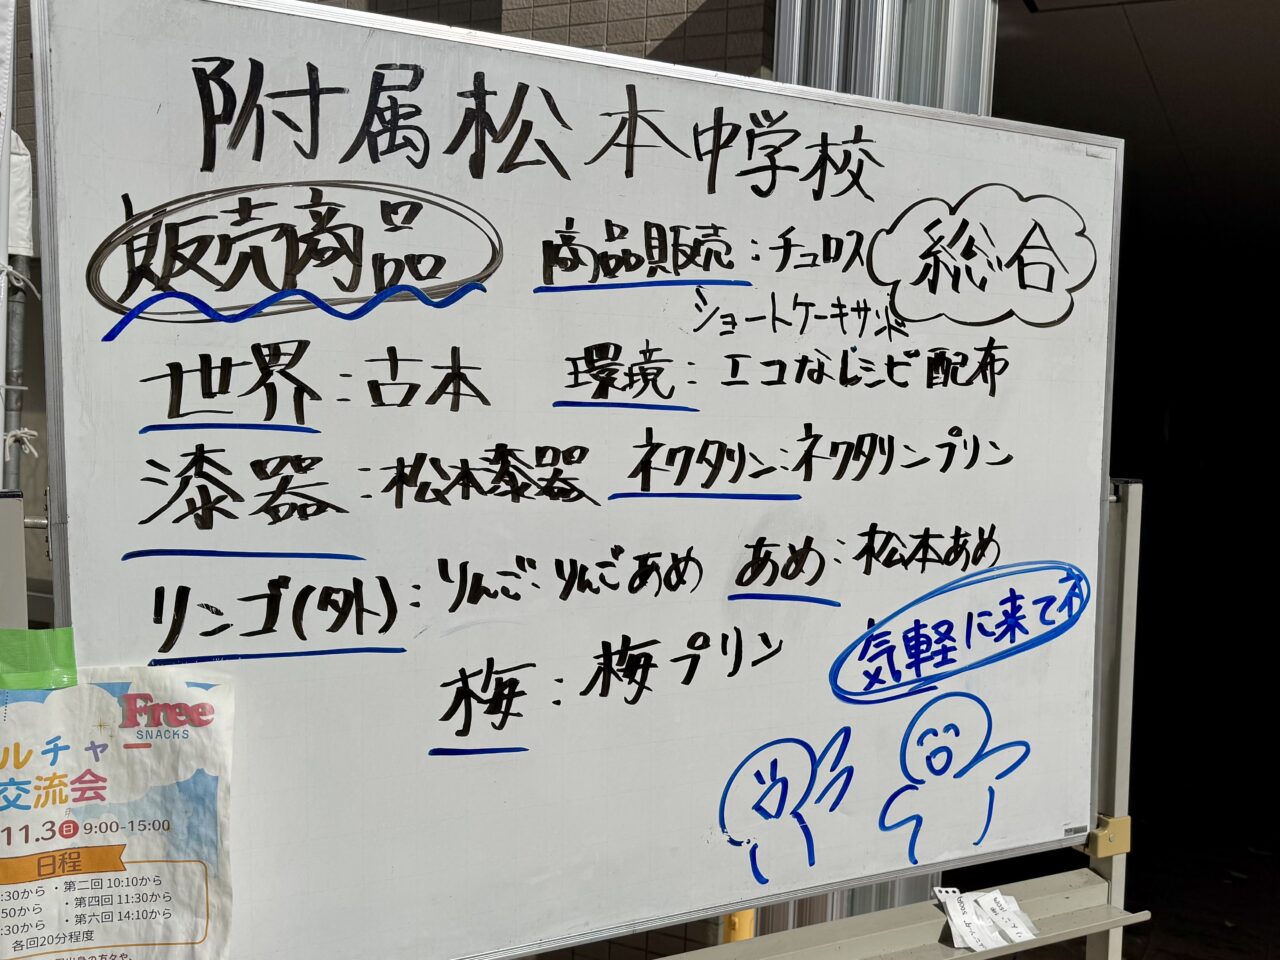 附属松本中学校
販売商品
商品販売：チュロス
ショートケーキサンド
総合
世界：古本
環境：エコなレシピ配布
漆器：松本漆器
ネクタリン：ネクタリンプリン
リンゴ(外)：りんご：りんごあめ
あめ：松本あめ
梅：梅プリン
気軽に来てネ
Free
SNACKS
ルチャ
交流会
11.3日 9:00-15:00
日程
:30から ・第二回 10:10から
50から ・第四回 11:30から
:30から ・第六回 14:10から
各回20分程度